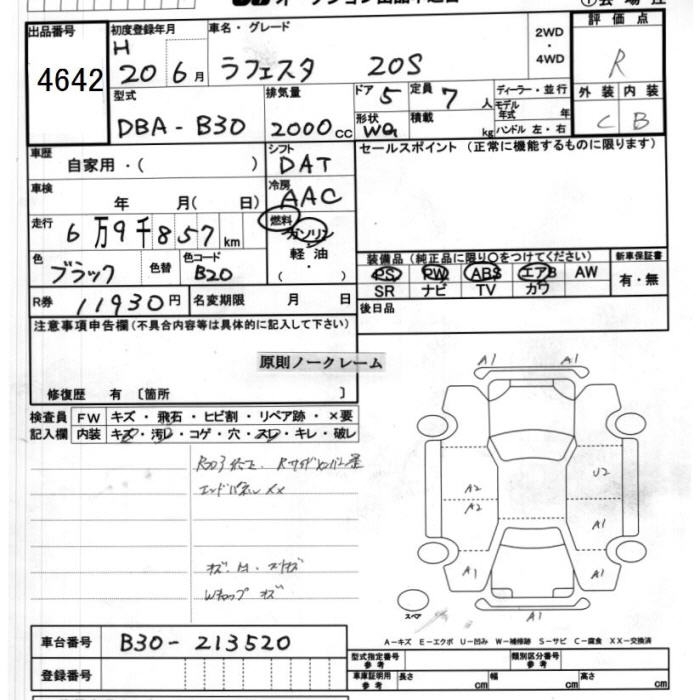 出品番号
4642
初度登録年月
H
20 6月
車名・グレード
ラフェスタ 20S
2WD
・
4WD
評価点
R
型式
DBA-B30
排気量
2000cc
ドア
5
定員
7人
形状
WG
積載
kg
ディーラー・並行
モデル年式 年
ハンドル 左・右
外装 内装
C B
車歴
自家用・( )
シフト
DAT
セールスポイント (正常に機能するものに限ります)
車検
年 月( 日)
冷房
AAC
走行
6万9千857km
燃料
ガソリン
軽油
・
( )
色
ブラック
色替
色コード
B20
装備品 (純正品に限り○をつけてください)
PS PW ABS エアB AW
SR ナビ TV カワ
新車保証書
有・無
R券
11930円
名変期限 月 日
後日品
注意事項申告欄(不具合内容等は具体的に記入して下さい)
原則ノークレーム
修復歴 有 〔箇所 〕
検査員
記入欄
FW キズ・飛石・ヒビ割・リペア跡・×要
内装 キズ・汚レ・コゲ・穴・スレ・キレ・破レ
エンドパネルXX
A1 A1
A2
A2
U2
A1
A1
A1
A1
スペア
A-キズ E-エクボ U-凹み W-補修跡 S-サビ C-腐食 XX-交換済
車台番号
B30-213520
登録番号
型式指定番号
参考
類別区分番号
参考
車庫証明用
参考
長さ cm
幅 cm
高さ cm